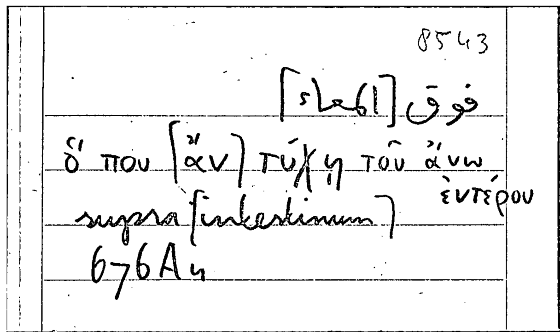 8543
فوق [الامعاء]
ὅ που [ἂν] τύχῃ τοῦ ἄνω
ἐντέρου
supra [intestinum]
676A4